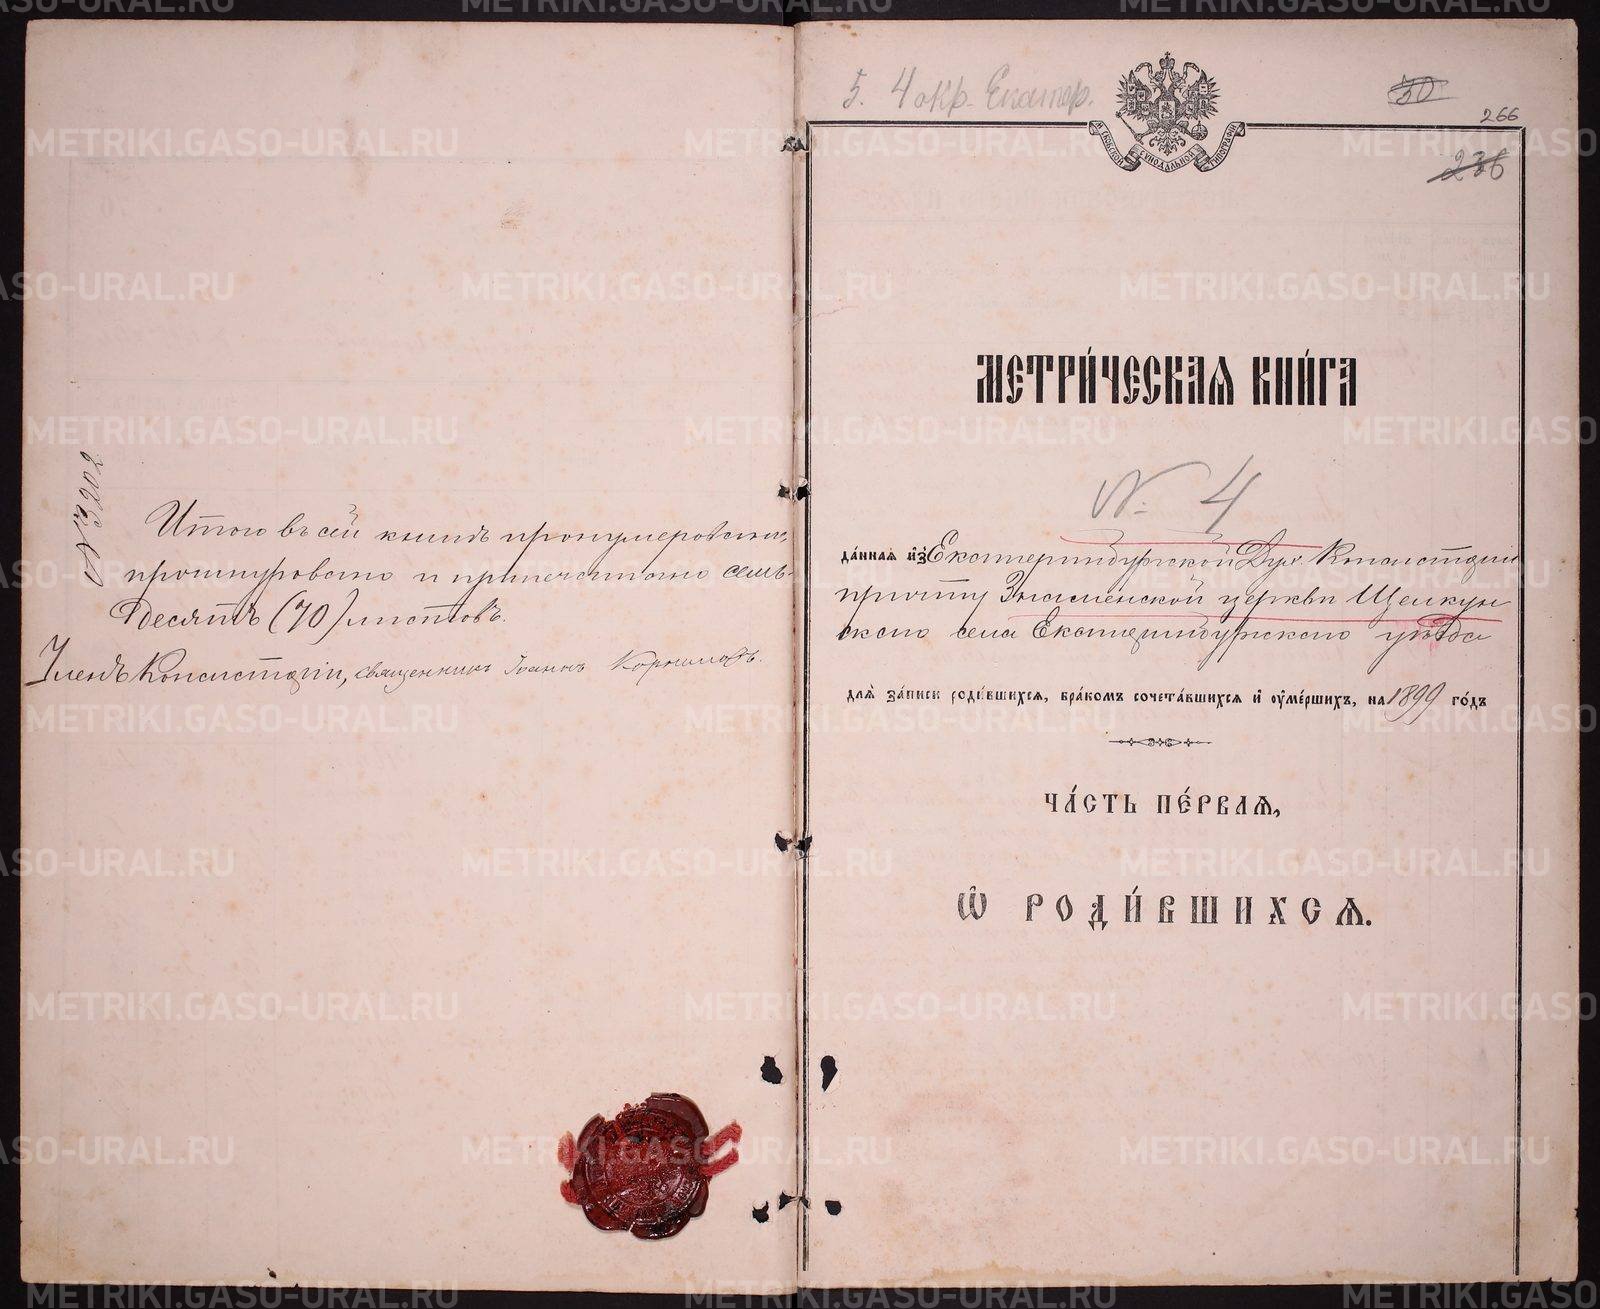 № 3202
Итого въ сей книгѣ пронумеровано,
прошнуровано и припечатано семь-
десятъ (70) листовъ.
Членъ Консисторіи, священникъ Іоаннъ
5. 4 окр. Екатер.
50
266
236
МОСКОВСКОЙ СѴНОДАЛЬНОЙ ТИПОГРАФІИ
МЕТРИ́ЧЕСКАѦ КНИ́ГА
№ 4
да́ннаѧ и҆з̾ Екатеринбургской Дух. Консисторіи
причту Знаменской церкви Щелкун
скаго села Екатеринбургскаго уѣзда
длѧ̀ за́писи роди́вшихсѧ, бра́комъ сочета́вшихсѧ и҆ оу҆ме́ршихъ, на 1899 го́дъ
ЧА́СТЬ ПЕ́РВАѦ,
Ѽ РОДИ́ВШИХСѦ.
METRIKI.GASO-URAL.RU